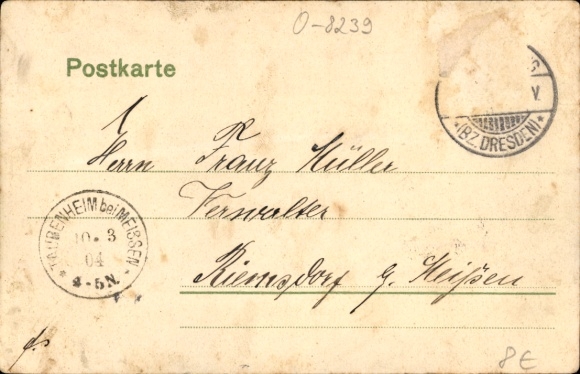 O-8239
Postkarte
G
V.
*(BZ. DRESDEN)*
Herrn Franz Müller
Verwalter
TAUBENHEIM bei MEISSEN
10. 3
04
4-5N.
Riemsdorf b. Meißen
8€